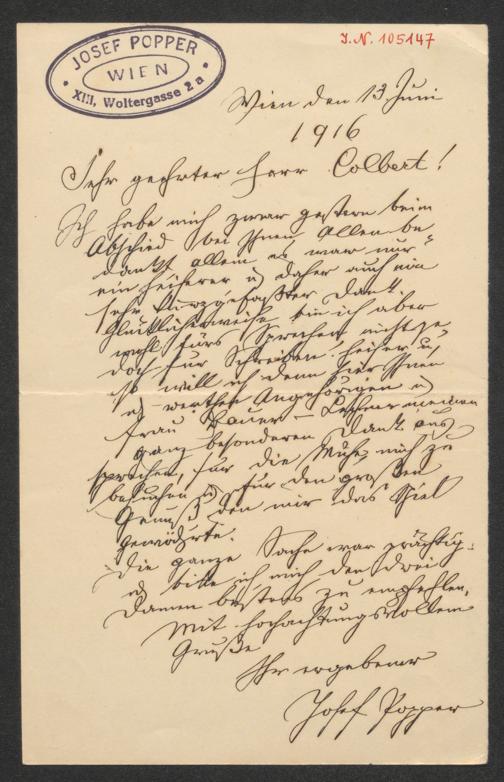 JOSEF POPPER
WIEN
XIII, Woltergasse 2a
I.N. 105147
Wien den 13 Juni
1916
Sehr geehrter Herr Colbert!
Ich habe mich zwar gestern beim
Abschied bei Ihnen Allen be-
dankt, allein es war nur
ein heiserer u daher auch ein
sehr kurzgefaßter Dank.
Glücklicherweise bin ich aber
wohl fürs Sprechen nicht je-
doch für Schreiben heiser u
so will ich denn hier Ihnen
u werthen Angehörigen u
Frau Bauer-Lechner meinen
ganz besonderen Dank aus-
sprechen, für die Mühe mich zu
besuchen u für den großen
Genuß den mir das Spiel
gewährte.
Die ganze Sache war prächtig.
u bitte ich mich den drei
Damen bestens zu empfehlen.
Mit hochachtungsvollem
Gruße
Ihr ergebener
Josef Popper